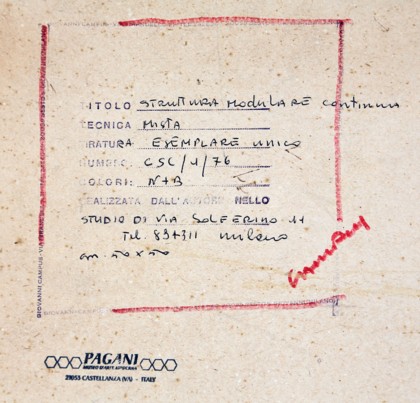 TITOLO STRUTTURA MODULARE CONTINUA
TECNICA MISTA
TIRATURA ESEMPLARE UNICO
NUMERO: CSC/4/76
COLORI: N+B
REALIZZATA DALL'AUTORE NELLO
STUDIO DI VIA SOLFERINO 11
Tel. 897311 milano
cm. 50 x 50
GIOVANNI CAMPUS
PAGANI
MUSEO D'ARTE MODERNA
21053 CASTELLANZA (VA) - ITALY